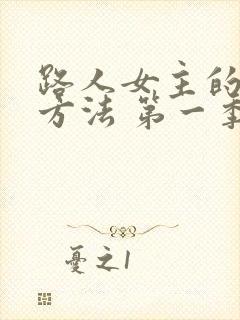 路人女主的
方法 第一季
憂之1